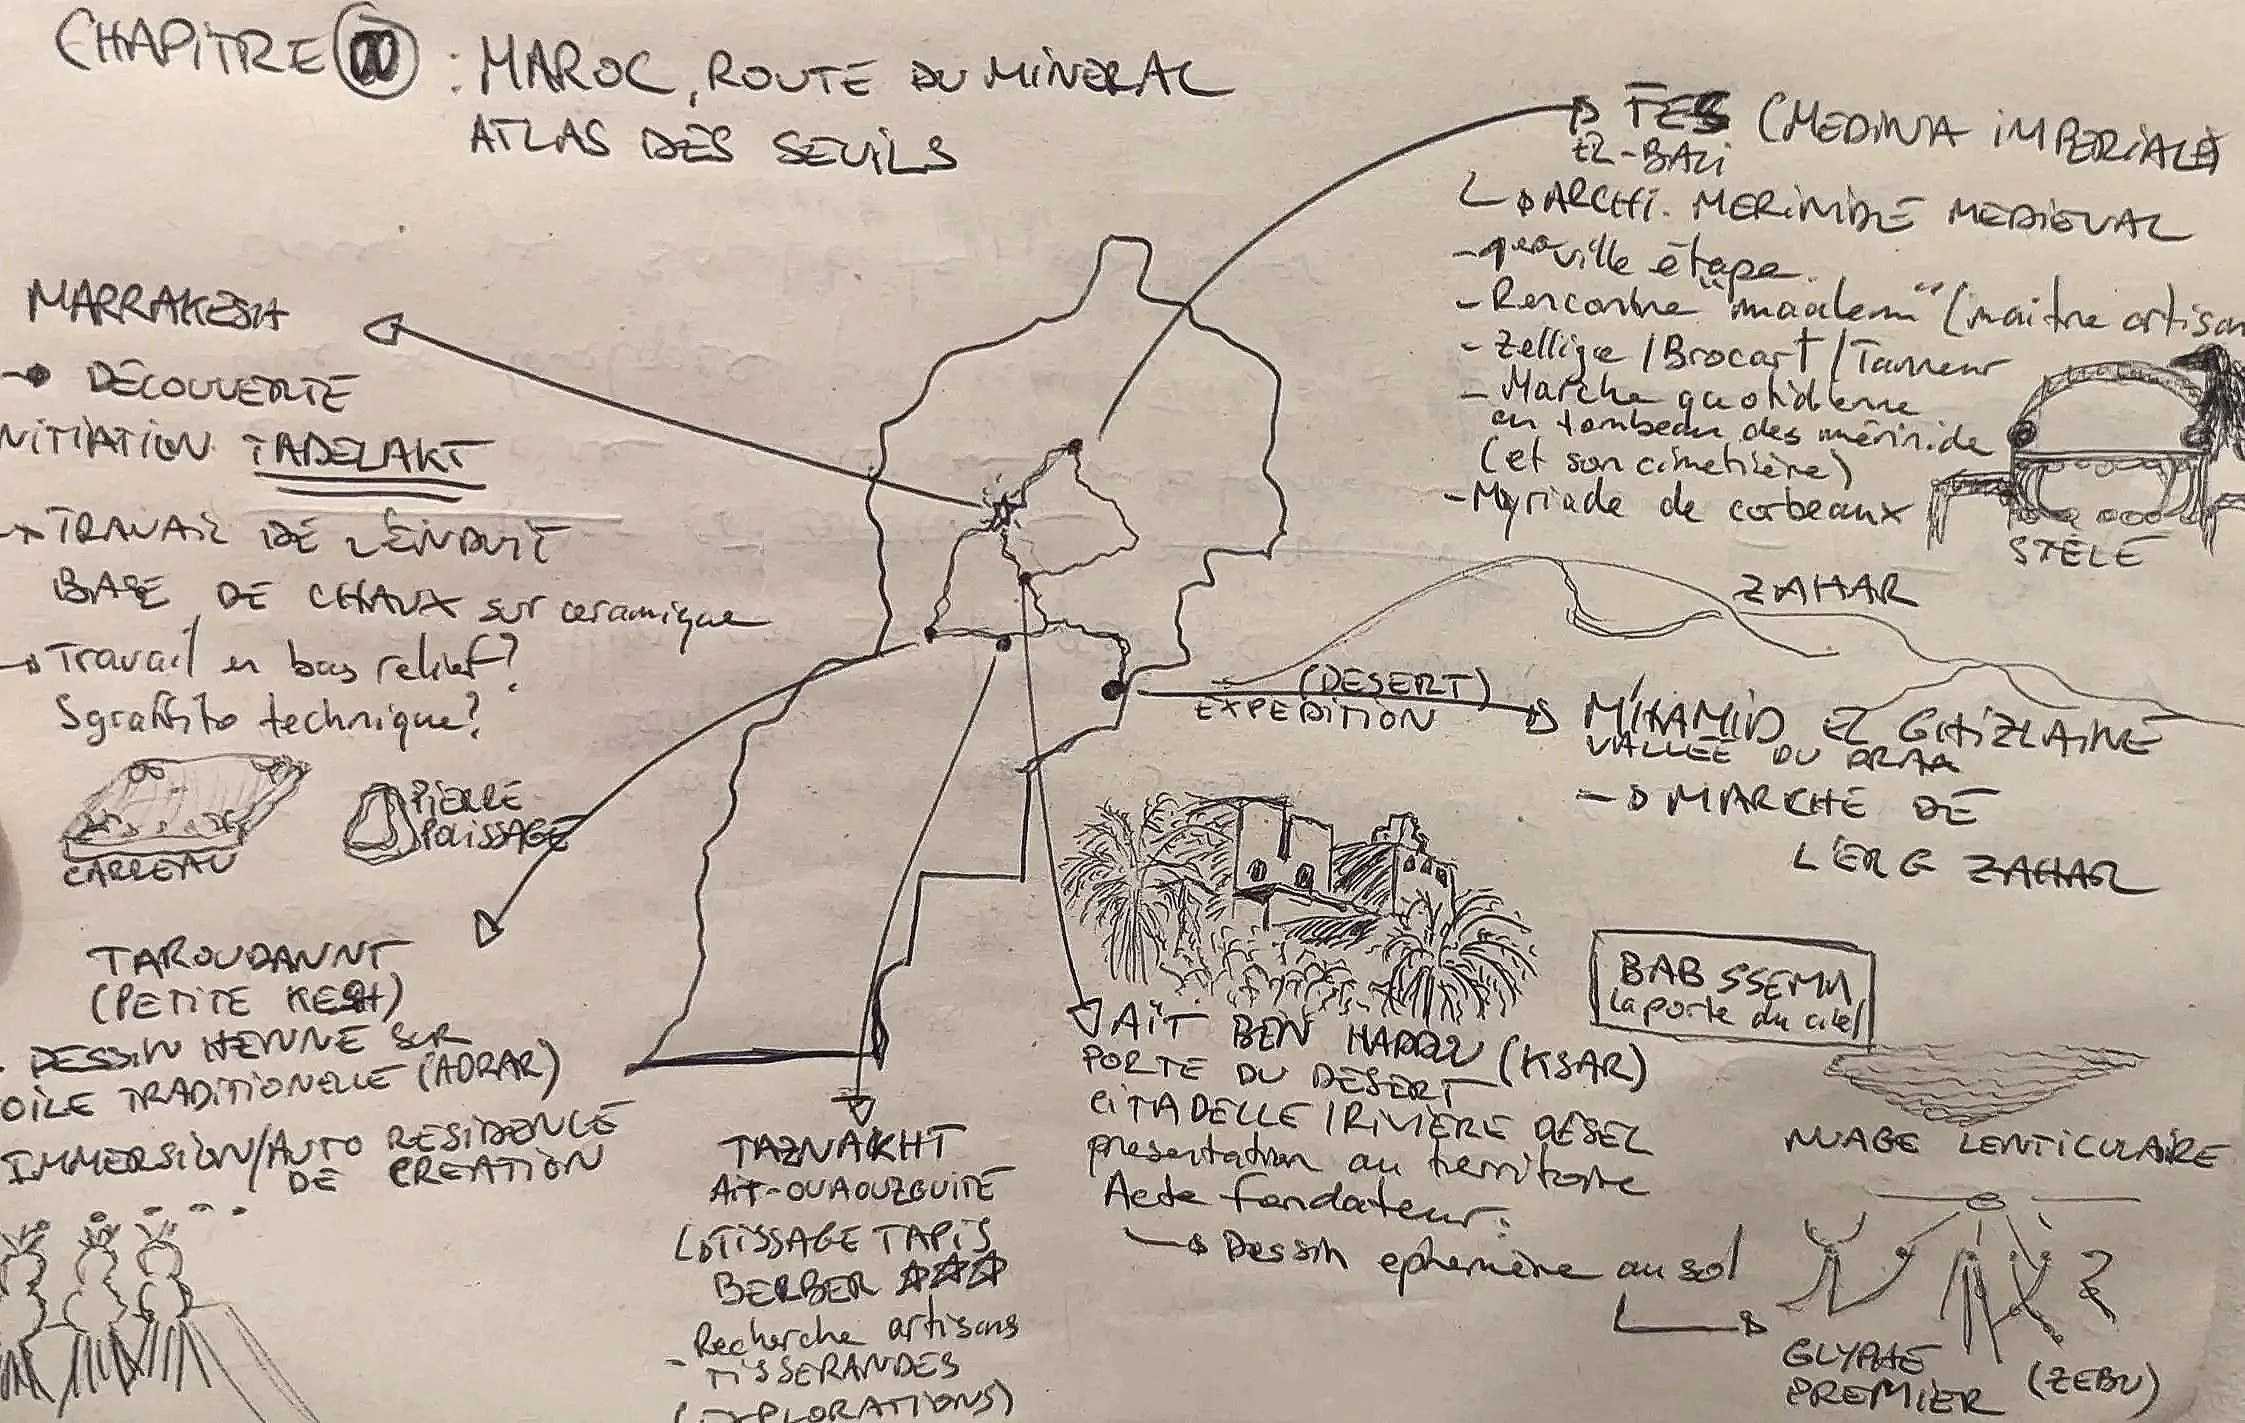 CHAPITRE : MAROC, ROUTE DU MINERAL
ATLAS DES SEUILS
FES (MEDINA IMPERIALE
EL-BALI
ARCHI. MERINIDE MEDIEVAL
- ville étape.
- Rencontre "maalem" (maitre artisan
- Zellige / Brocart / Tanneur
- Marche quotidienne
au tombeau des mérinide
(et son cimetière)
- Myriade de corbeaux
STELE
MARRAKESH
DECOUVERTE
INITIATION TADELAKT
TRAVAIL DE L'ENDUIT
BASE DE CHAUX sur ceramique
Travail en bas relief?
Sgraffito technique?
CARREAU
PIERRE
POLISSAGE
ZAHAR
(DESERT)
EXPEDITION
M'HAMID EL GHIZLAINE
VALLEE DU DRAA
MARCHE DE
L'ERG ZAHAR
TAROUDANNT
(PETITE KESH)
- DESSIN HENNE SUR
TOILE TRADITIONELLE (ADRAR)
IMMERSION/AUTO RESIDENCE
DE CREATION
TAZNAKHT
AIT-OUAOUZGUITE
TISSAGE TAPIS
BERBER
- Recherche artisans
- TISSERANDES
(EXPLORATIONS)
AÏT BEN HADDU (KSAR)
PORTE DU DESERT
CITADELLE / RIVIERE DE SEL
presentation au territoire
Acte fondateur:
Dessin ephemère au sol
BAB SSEMA
la porte du ciel
NUAGE LENTICULAIRE
GLYPHE
PREMIER (ZEBU)